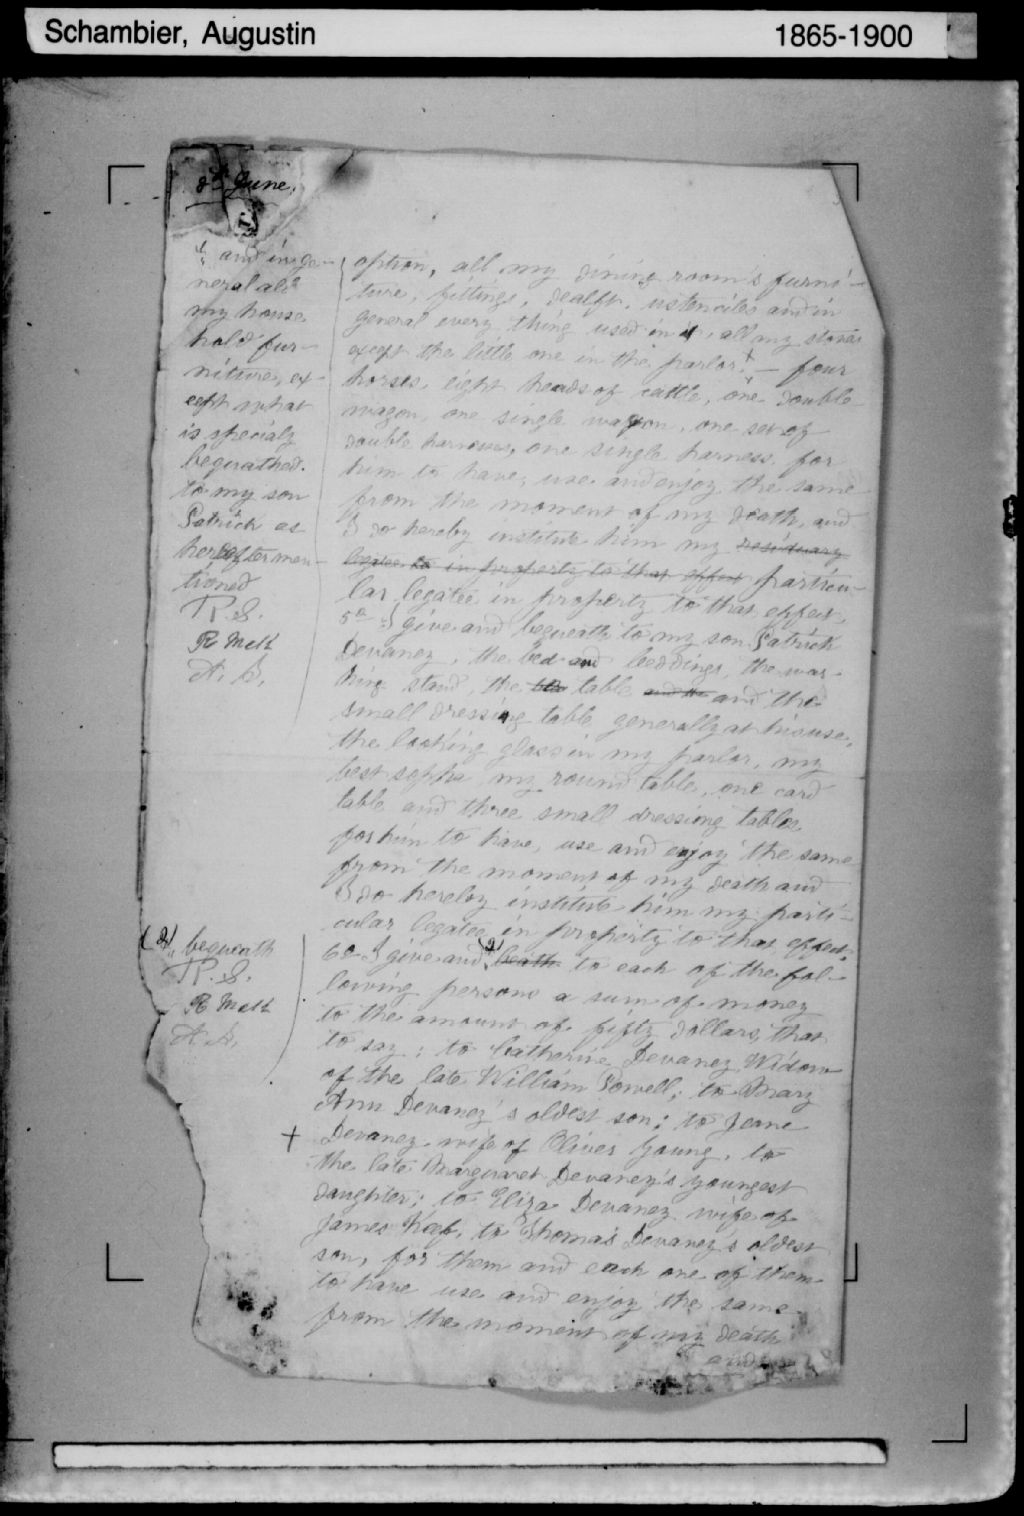 Schambier, Augustin
1865-1900
8th June.
+ and in ge-
neral all
my house
hold fur-
niture, ex-
cept what
is specialy
bequeathed.
to my son
Patrick as
hereafter men-
tioned
R. S.
R McK
A. S.
option, all my dining room's furni-
ture, fittings, dealft, ustenciles and in
general every thing used in it, all my stoves
except the little one in the parlor + — four
horses, eight heads of cattle, one double
wagon, one single wagon, one set of
double harnesses, one single harness, for
him to have, use and enjoy the same
from the moment of my death, and
I do hereby institute him my residuary
legatee in property to that effect particu-
lar legatee in property to that effect,
5o I give and bequeath to my son Patrick
Devaney, the bed and beddings, the was-
hing stand, the table and the and the
small dressing table generally at his use,
the looking glass in my parlor, my
best sopha my round table, one card
table and three small dressing tables
for him to have, use and enjoy the same
from the moment of my death and
I do hereby institute him my parti-
cular legatee in property to that effect,
(2) bequeath
R. S.
R McK
A. S.
6o I give and (2) beath to each of the fol-
lowing persons a sum of money
to the amount of fifty dollars, that
to say; to Catherine Devaney Widow
of the late William Powell; to Mary
Ann Devaney's oldest son; to Jeane
+ Devaney wife of Oliver Young, to
the late Marguaret Devaney's youngest
daughter; to Eliza Devaney wife of
James Keef, to Thomas Devaney's oldest
son, for them and each one of them
to have use and enjoy the same
from the moment of my death
and